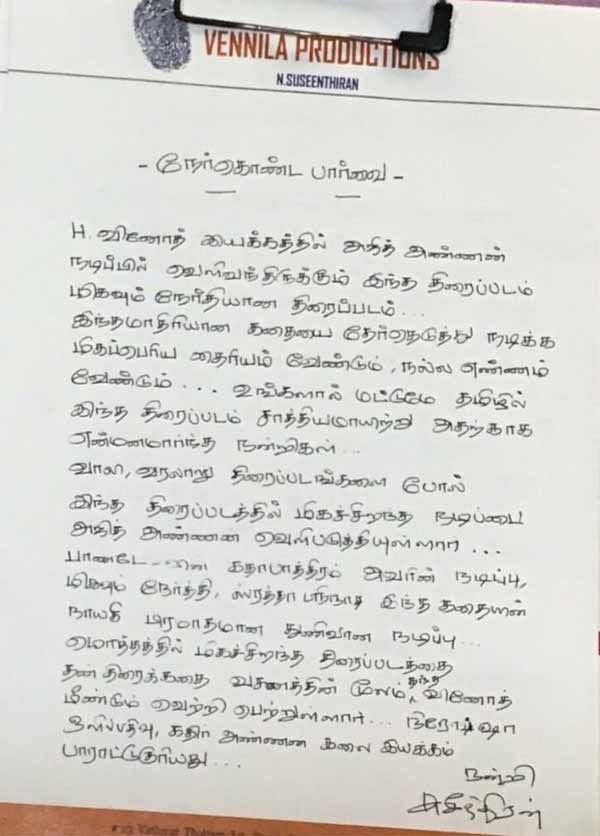 VENNILA PRODUCTIONS
N.SUSEENTHIRAN
- நேர்கொண்ட பார்வை -
H. வினோத் இயக்கத்தில் அஜித் அண்ணன்
நடிப்பில் வெளிவந்திருக்கும் இந்த திரைப்படம்
மிகவும் நேர்தியான திரைப்படம்...
இந்தமாதிரியான கதையை தேர்தெடுத்து நடிக்க
மிகப்பெரிய தைரியம் வேண்டும், நல்ல எண்ணம்
வேண்டும்... உங்களால் மட்டுமே தமிழில்
இந்த திரைப்படம் சாத்தியமாயிற்று அதற்காக
என்மனமார்ந்த நன்றிகள்...
வாலி, வரலாறு திரைப்படங்களை போல்
இந்த திரைப்படத்தில் மிகச்சிறந்த நடிப்பை
அஜித் அண்ணன் வெளிபடுத்தியுள்ளார்...
பாண்டே கதாபாத்திரம் அவரின் நடிப்பு,
மிகவும் நேர்த்தி, ஸ்ரத்தா இந்த கதையின்
நாயகி பிரமாதமான துணிவான நடிப்பு...
மொத்தத்தில் மிகச்சிறந்த திரைப்படத்தை
தன் திரைக்கதை வசனத்தின் மூலம் தந்த வினோத்
மீண்டும் வெற்றி பெற்றுள்ளார்... நிரோஷா
ஒளிப்பதிவு, கதிர் அண்ணன் கலை இயக்கம்
பாராட்டுகுரியது...
நன்றி
சுசீந்திரன்